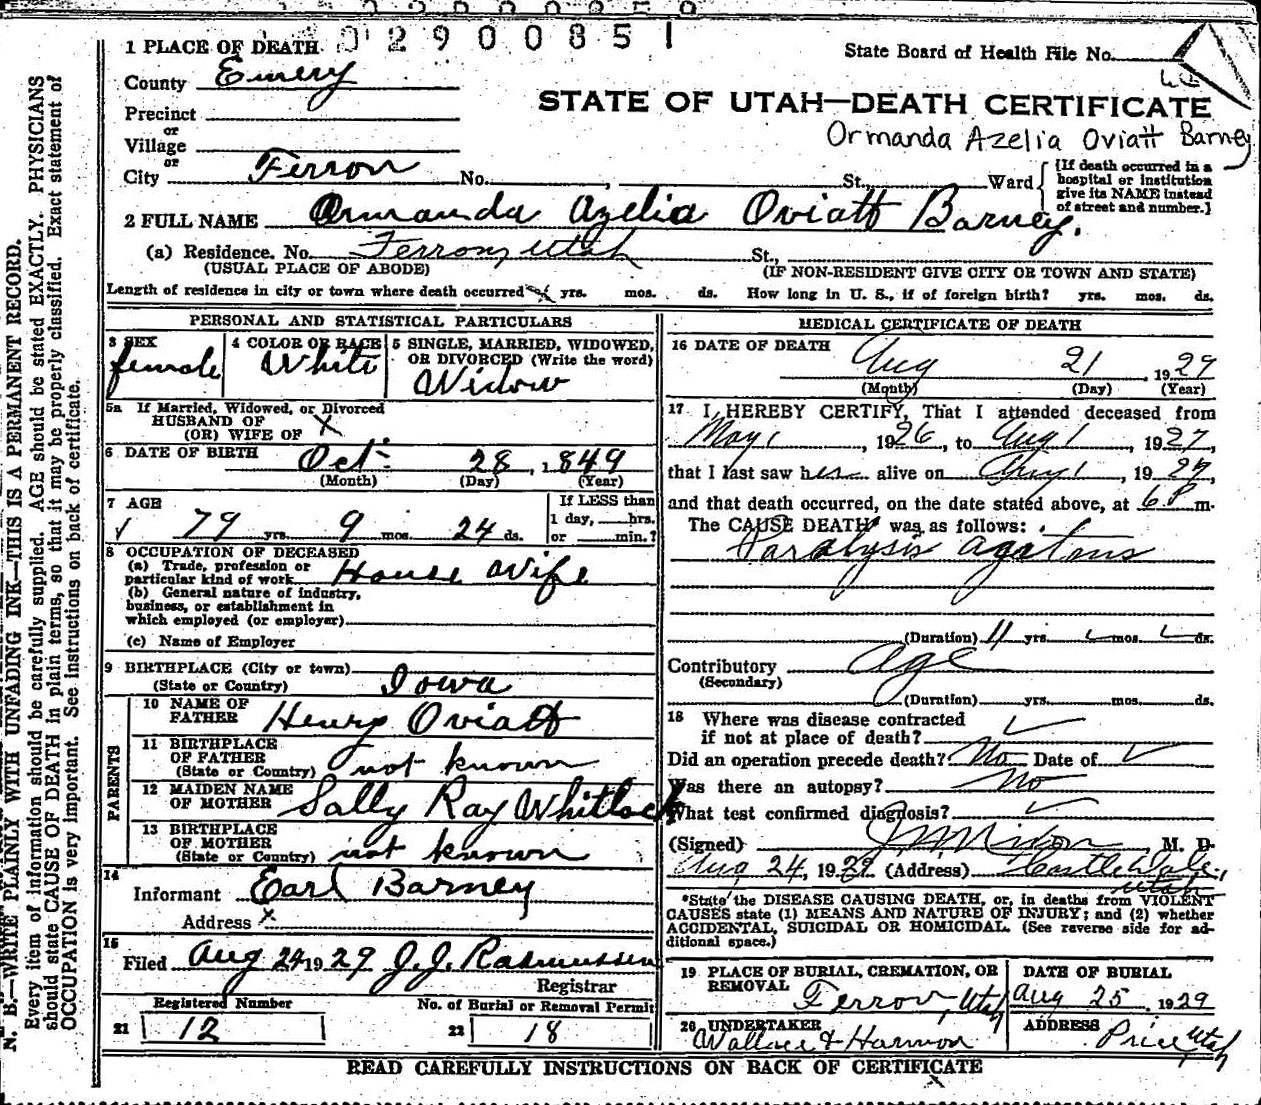 02900851
1 PLACE OF DEATH
State Board of Health File No.
County Emery
STATE OF UTAH—DEATH CERTIFICATE
Precinct
or
Village
or
Ormanda Azelia Oviatt Barney
City Ferron No. , St., Ward
{If death occurred in a hospital or institution give its NAME instead of street and number.}
2 FULL NAME Ormanda Azelia Oviatt Barney.
(a) Residence. No. Ferron, Utah St.,
(USUAL PLACE OF ABODE) (IF NON-RESIDENT GIVE CITY OR TOWN AND STATE)
Length of residence in city or town where death occurred yrs. mos. ds. How long in U. S., if of foreign birth? yrs. mos. ds.
PERSONAL AND STATISTICAL PARTICULARS
3 SEX
female
4 COLOR OR RACE
White
5 SINGLE, MARRIED, WIDOWED,
OR DIVORCED (Write the word)
Widow
5a If Married, Widowed, or Divorced
HUSBAND OF
(OR) WIFE OF X
6 DATE OF BIRTH Oct. 28, 1849
(Month) (Day) (Year)
7 AGE
79 yrs. 9 mos. 24 ds.
If LESS than
1 day, hrs.
or min.?
8 OCCUPATION OF DECEASED
(a) Trade, profession or
particular kind of work House Wife
(b) General nature of industry,
business, or establishment in
which employed (or employer)
(c) Name of Employer
9 BIRTHPLACE (City or town)
(State or Country) Iowa
PARENTS
10 NAME OF
FATHER Henry Oviatt
11 BIRTHPLACE
OF FATHER
(State or Country) not known
12 MAIDEN NAME
OF MOTHER Sally Ray Whitlock
13 BIRTHPLACE
OF MOTHER
(State or Country) not known
14
Informant Earl Barney
Address x
15
Filed Aug 24 1929 J. J. Rasmussen
Registrar
Registered Number
21 12
No. of Burial or Removal Permit
22 18
MEDICAL CERTIFICATE OF DEATH
16 DATE OF DEATH
Aug 21, 1929
(Month) (Day) (Year)
17 I HEREBY CERTIFY, That I attended deceased from
May 1, 1926, to Aug 1, 1927,
that I last saw her alive on Aug 1, 1927,
and that death occurred, on the date stated above, at 6 P m.
The CAUSE DEATH* was as follows:
Paralysis agatans
(Duration) 11 yrs. mos. ds.
Contributory Age
(Secondary)
(Duration) yrs. mos. ds.
18 Where was disease contracted
if not at place of death?
Did an operation precede death? No Date of
Was there an autopsy? No
What test confirmed diagnosis?
(Signed) , M. D.
Aug 24, 1929 (Address) Castle Dale, Utah
*State the DISEASE CAUSING DEATH, or, in deaths from VIOLENT
CAUSES state (1) MEANS AND NATURE OF INJURY; and (2) whether
ACCIDENTAL, SUICIDAL OR HOMICIDAL. (See reverse side for ad-
ditional space.)
19 PLACE OF BURIAL, CREMATION, OR
REMOVAL
Ferron, Utah
DATE OF BURIAL
Aug 25 1929
20 UNDERTAKER
Wallace & Harmon
ADDRESS
Price, Utah
READ CAREFULLY INSTRUCTIONS ON BACK OF CERTIFICATE
N. B.—WRITE PLAINLY WITH UNFADING INK—THIS IS A PERMANENT RECORD.
Every item of information should be carefully supplied. AGE should be stated EXACTLY. PHYSICIANS
should state CAUSE OF DEATH in plain terms, so that it may be properly classified. Exact statement of
OCCUPATION is very important. See instructions on back of certificate.